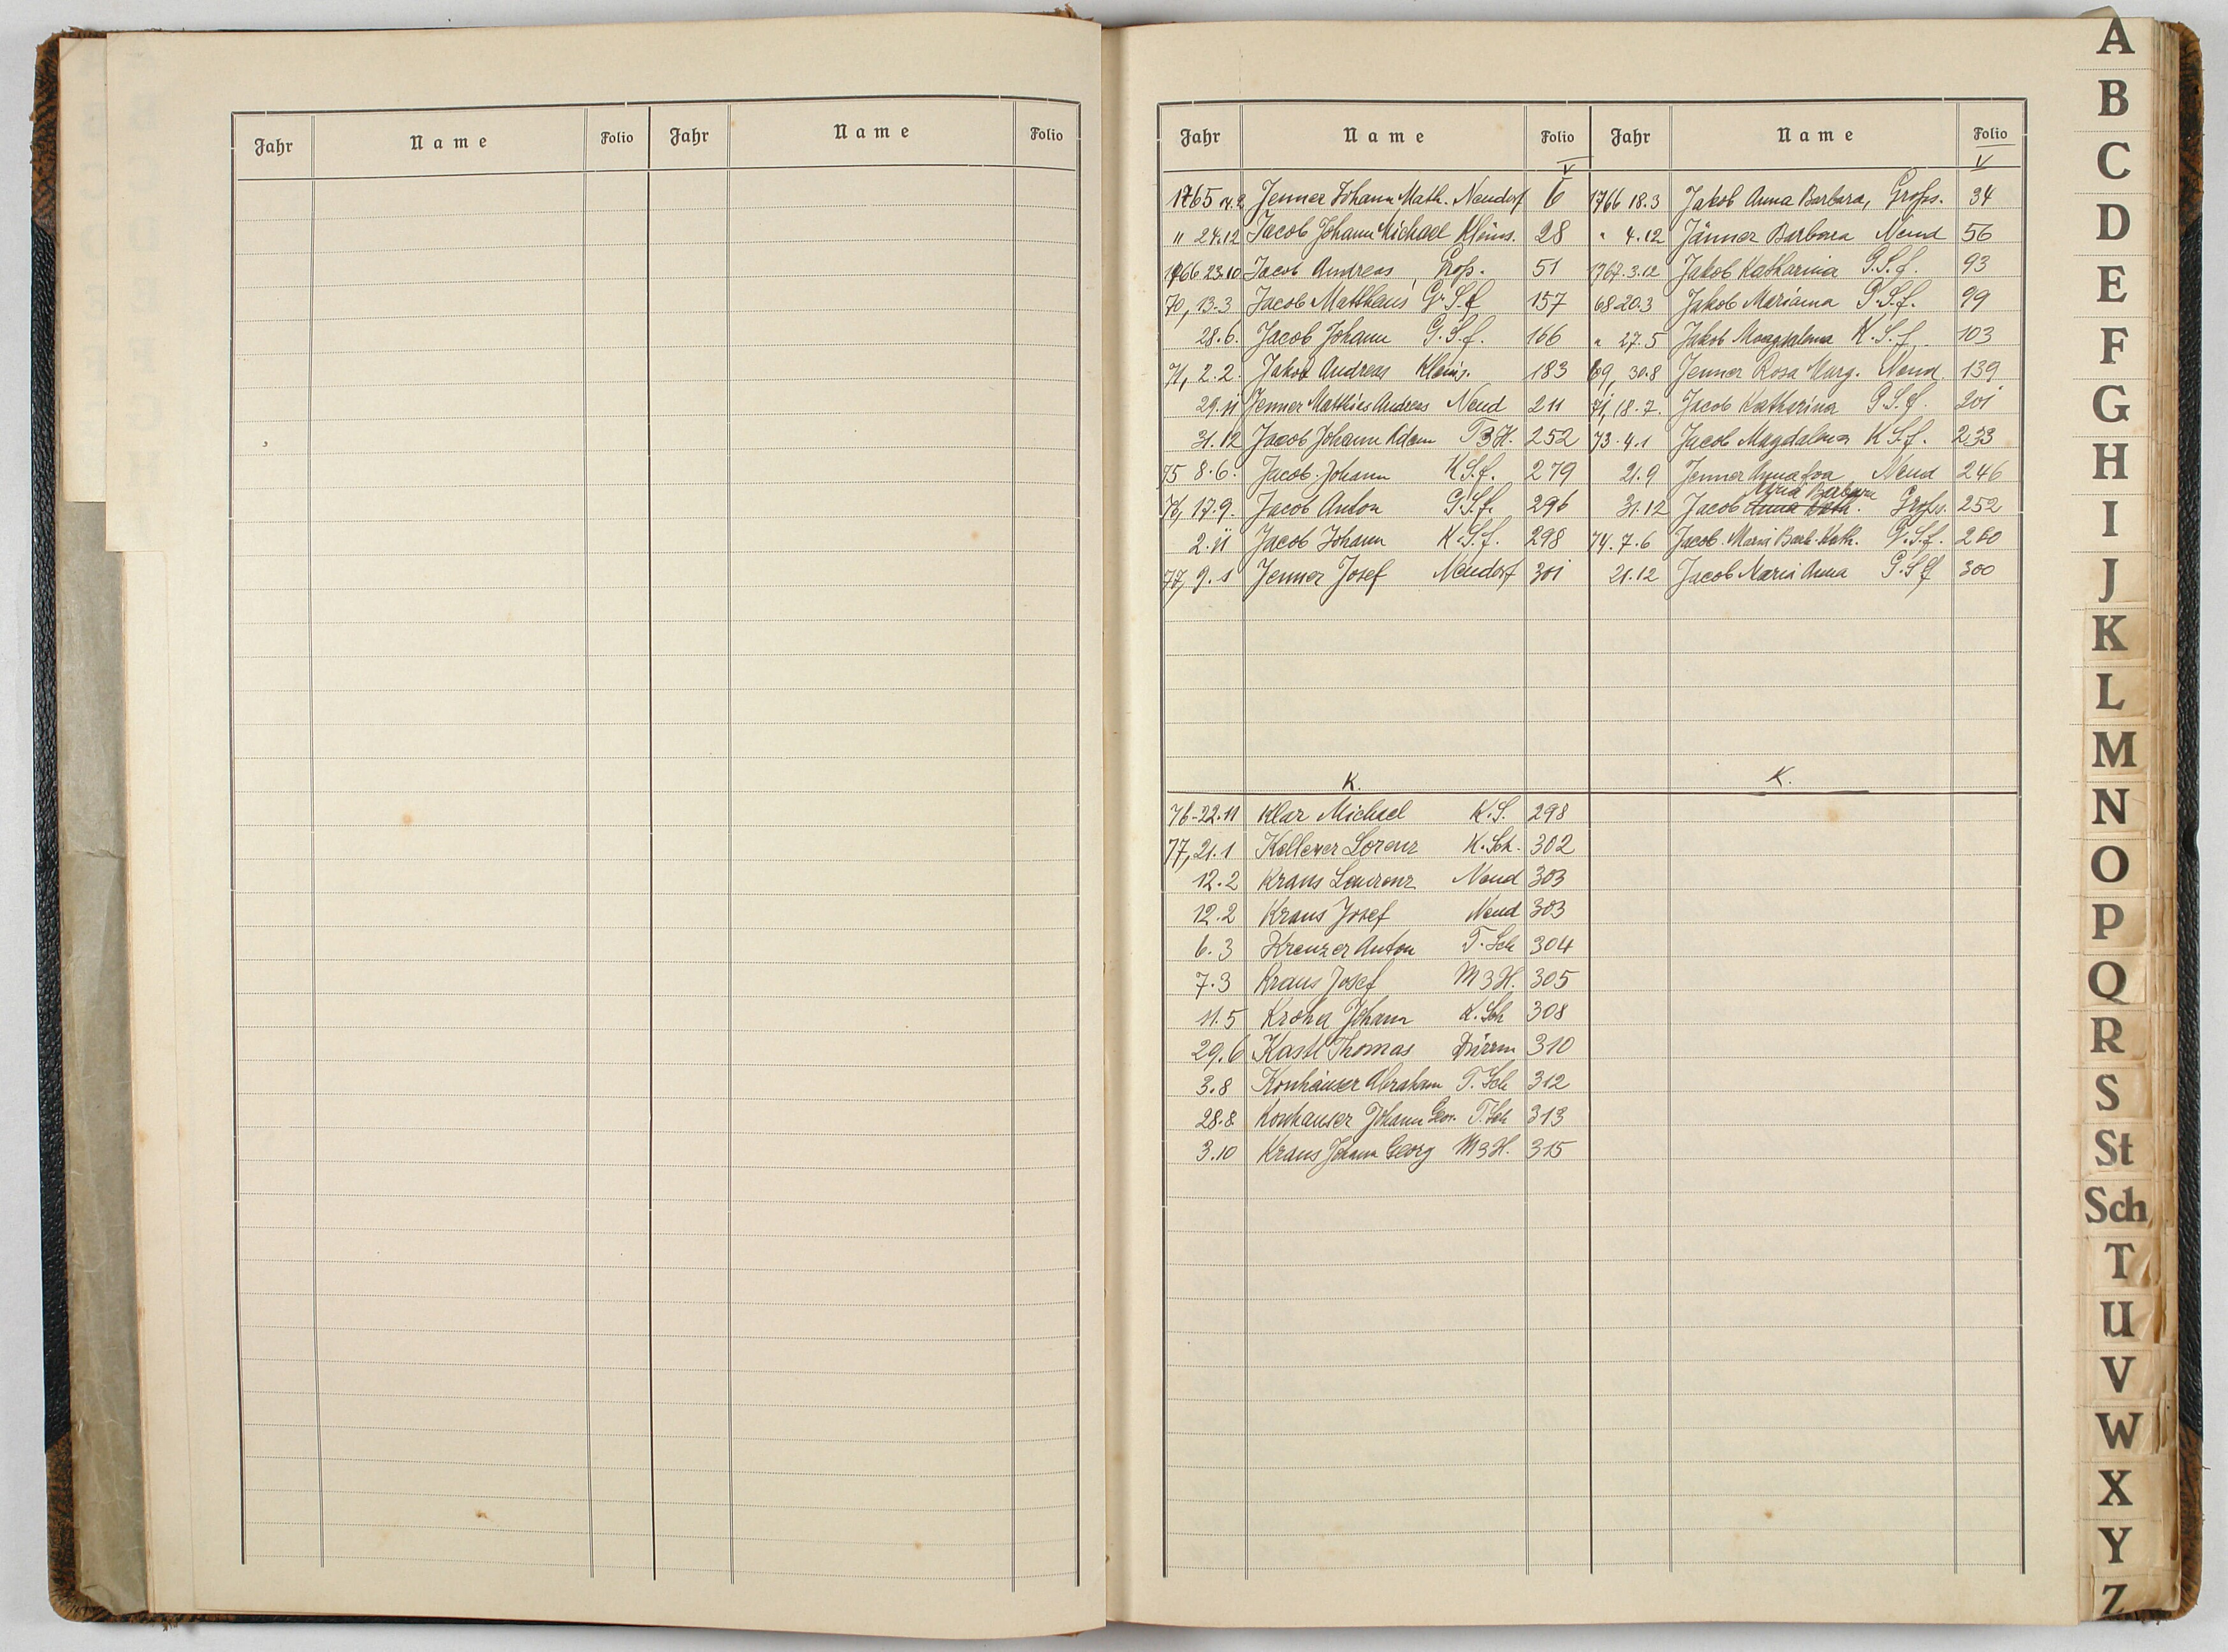 Jahr Name Folio Jahr Name Folio
Jahr Name Folio Jahr Name Folio
V V
1765 14.2 Jenner Johann Math. Neudorf 6
" 24.12 Jacob Johann Michael Kleins. 28
1766 23.10 Jacob Andreas, Groß. 51
70, 13.3 Jacob Matthäus Gr.S.f 157
28.6. Jacob Johann G.S.f. 166
71, 2.2. Jakob Andreas Kleins. 183
29.11 Jenner Matthias Andreas Neud 211
31.12 Jacob Johann Adam 252
75 8.6. Jacob Johann K.S.f. 279
76, 17.9. Jacob Anton G.S.f. 296
2.11 Jacob Johann K.S.f. 298
77, 9.1 Jenner Josef Neudorf 301
1766 18.3 Jakob Anna Barbara, Groß. 34
" 4.12 Jänner Barbara Neud 56
1767. 3.12 Jakob Katharina G.S.f. 93
68 20.3 Jakob Marianna G.S.f. 99
" 27.5 Jakob Magdalena K.S.f. 103
69, 30.8 Jenner Rosa Marg. Neud. 139
71, 18.7. Jacob Katharina G.S.f. 201
73. 4.1 Jacob Magdalena K.S.f. 233
21.9 Jenner Anna Eva Neud 246
Barbara
31.12 Jacob Anna Kath. Groß. 252
74. 7.6 Jacob Maria Barb. Kath. G.S.f. 260
21.12 Jacob Maria Anna G.Sf 300
K. K.
76-22.11 Klar Michael K.S. 298
77, 21.1 Kellerer Lorenz K.Sch. 302
12.2 Kraus Laurenz Neud 303
12.2 Kraus Josef Neud 303
6.3 Kreuzer Anton T.Sch 304
7.3 Kraus Josef M3H. 305
11.5 Kroha Johann K.Sch 308
29.6 Kastl Thomas Dürrm 310
3.8 Konhäuser Abraham T.Sch 312
28.8 Konhäuser Johann Geor. T.Sch 313
3.10 Kraus Johann Georg M3H. 315
A
B
C
D
E
F
G
H
I
J
K
L
M
N
O
P
Q
R
S
St
Sch
T
U
V
W
X
Y
Z